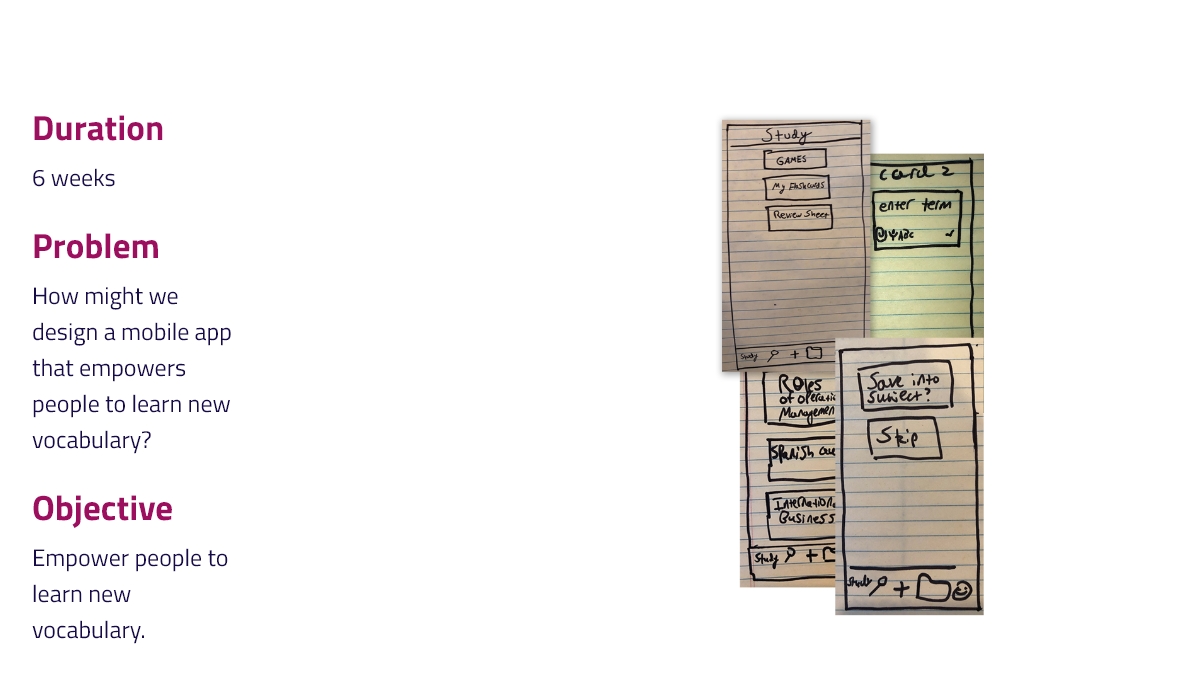 Duration
6 weeks
Problem
How might we
design a mobile app
that empowers
people to learn new
vocabulary?
Objective
Empower people to
learn new
vocabulary.
Study
GAMES
My Flashcards
Review Sheet
Study
card 2
enter term
ABC
Roles
of operatio
Managemen
Spanish
Internationa
Business
Study
Save into
subject?
Skip
Study